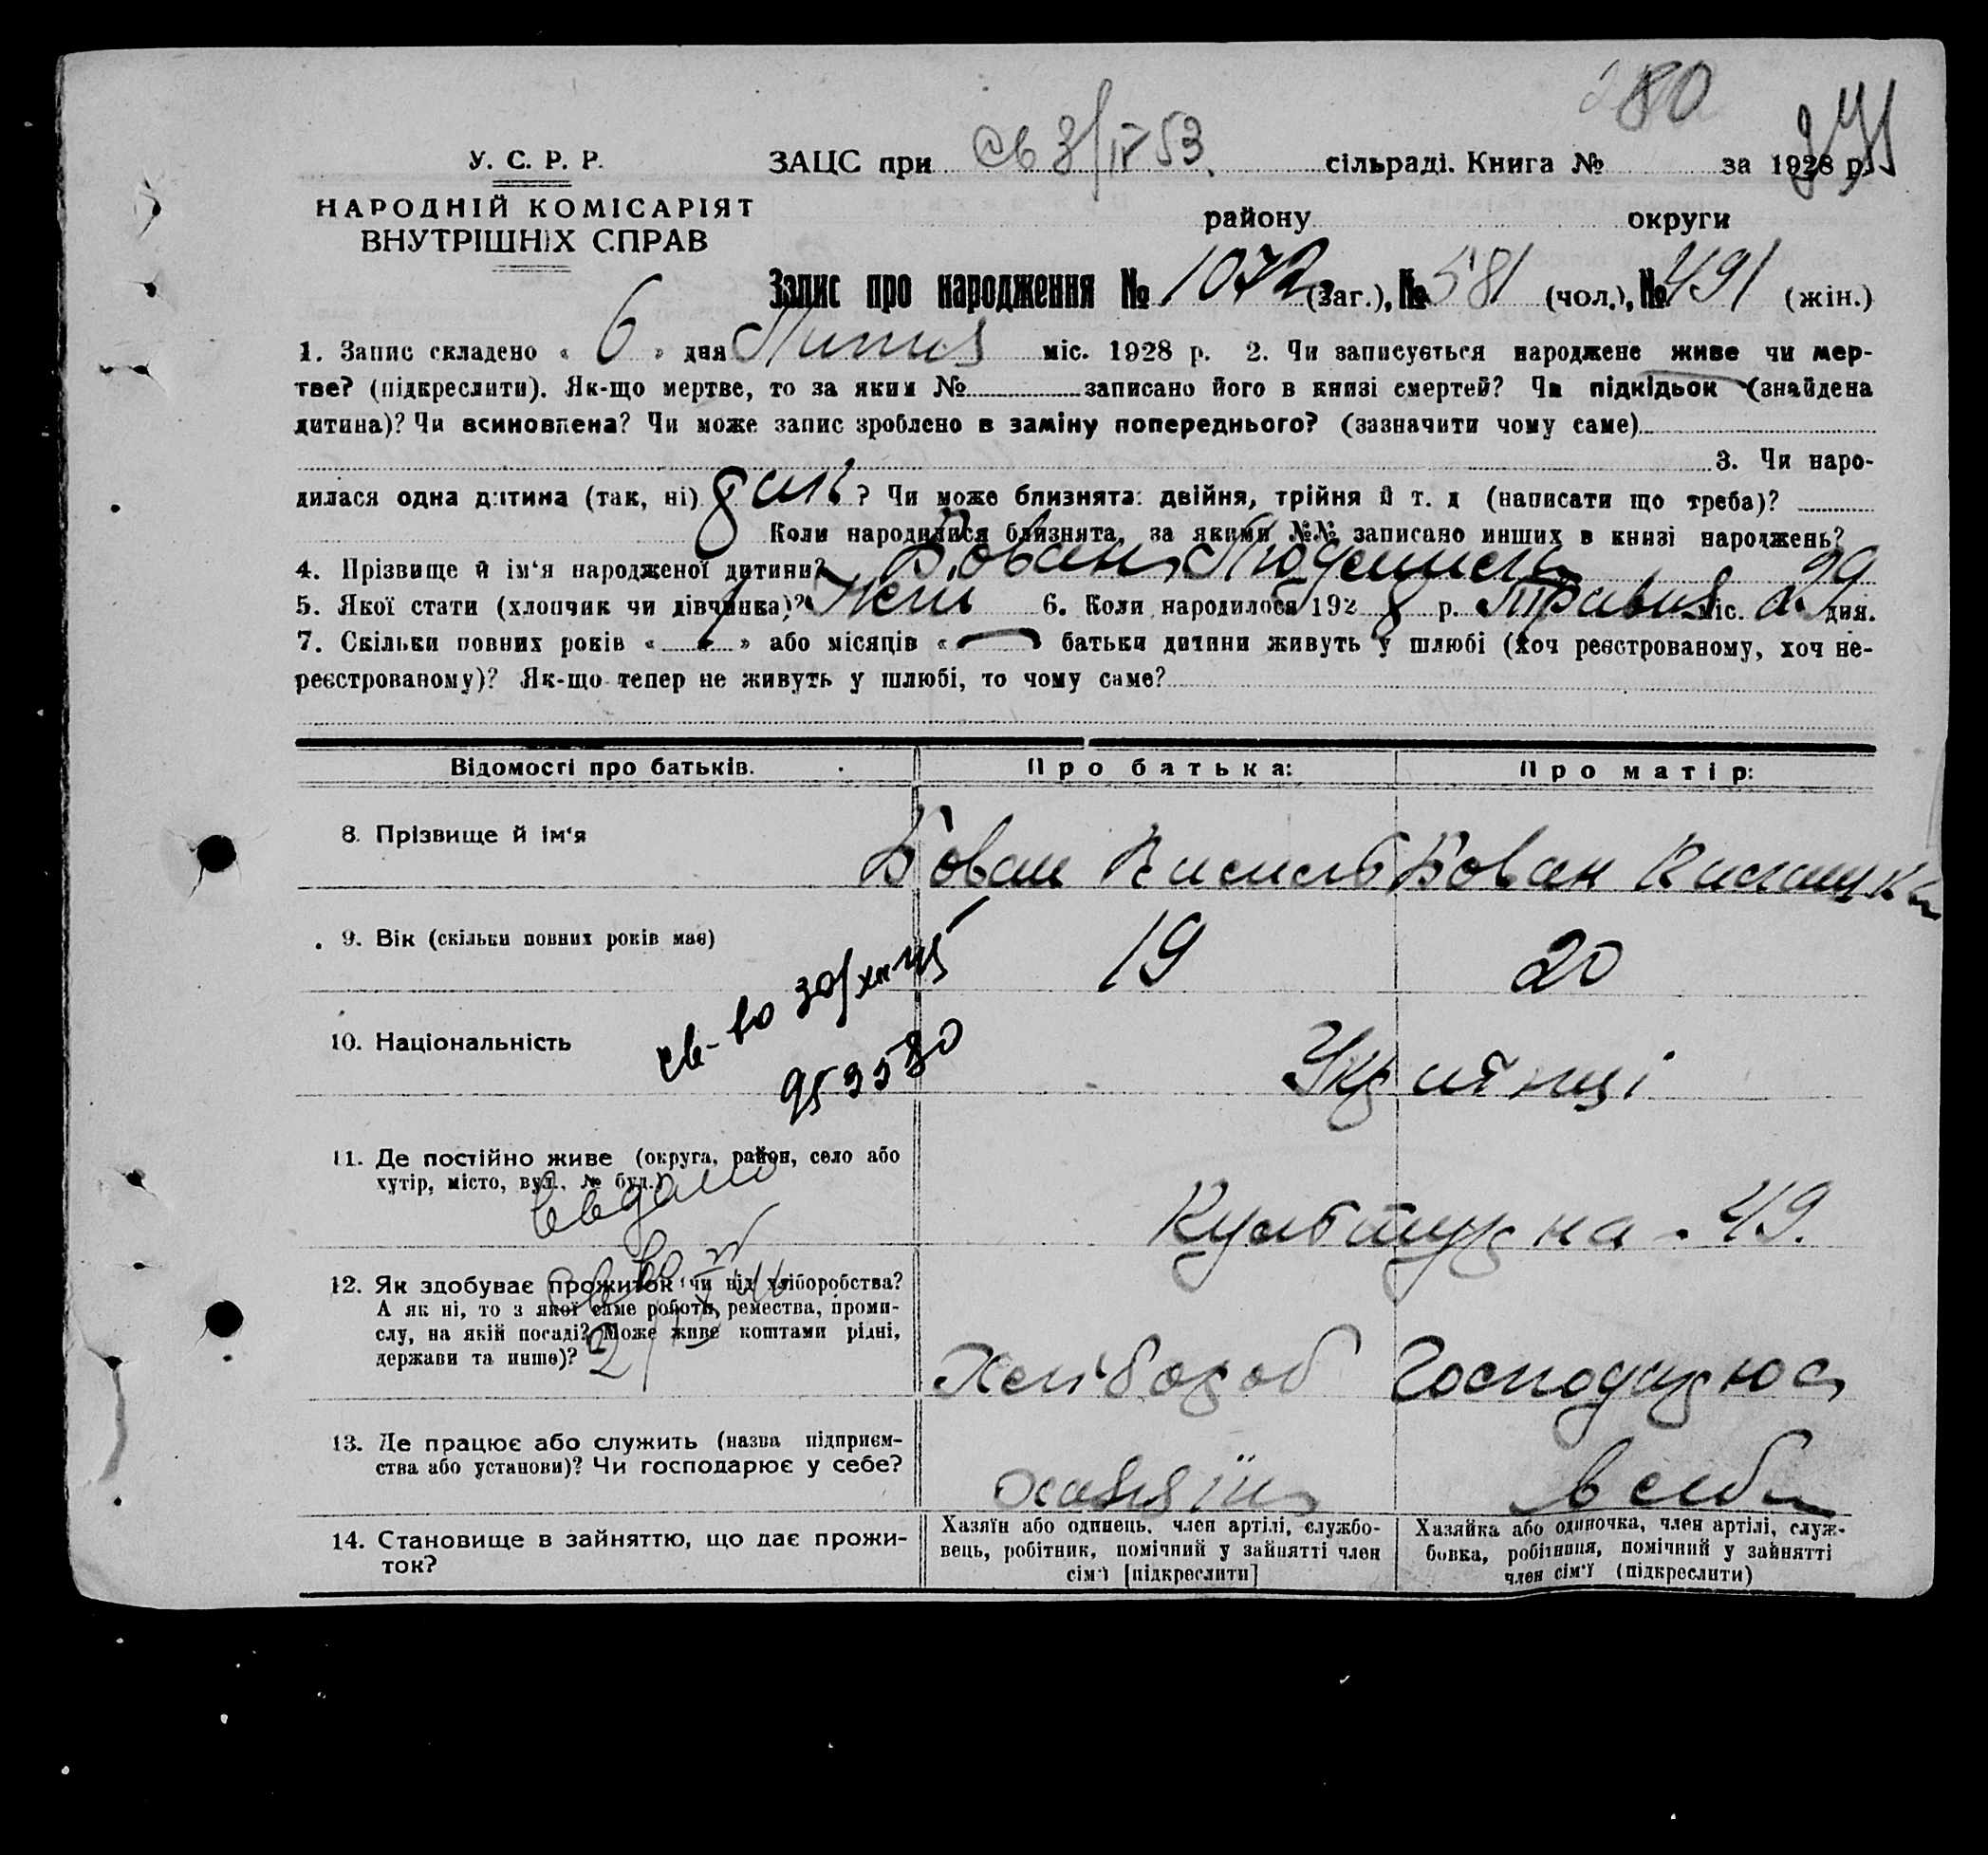 80
У. С. Р. Р.
НАРОДНІЙ КОМІСАРІЯТ
ВНУТРІШНІХ СПРАВ
ЗАЦС при св 3/IV 53. сільраді. Книга № за 1928 р.
району округи
Запис про народження № 1072 (заг.), № 581 (чол.), № 491 (жін.)
1. Запис складено « 6 » дня Липня міс. 1928 р. 2. Чи записується народжене живе чи мер-
тве? (підкреслити). Як-що мертве, то за яким № записано його в книзі смертей? Чи підкідьок (знайдена
дитина)? Чи всиновлена? Чи може запис зроблено в заміну попереднього? (зазначити чому саме)
3. Чи наро-
дилася одна дитина (так, ні) ? Чи може близнята: двійня, трійня й т. д (написати що треба)?
Коли народилися близнята, за якими №№ записано инших в книзі народжень?
4. Прізвище й ім‘я народженої дитини? Бован Людмила
5. Якої стати (хлопчик чи дівчинка)? жін 6. Коли народилося 1928 р. Травня міс. 29 дня.
7. Скільки повних років « » або місяців « » батьки дитини живуть у шлюбі (хоч реєстрованому, хоч не-
реєстрованому)? Як-що тепер не живуть у шлюбі, то чому саме?
Відомості про батьків. Про батька: Про матір:
8. Прізвище й ім‘я Бован Василь Бован
9. Вік (скільки повних років має) 19 20
св-во 30/XII 45
10. Національність Українці
953580
11. Де постійно живе (округа, район, село або
хутір, місто, вул., № буд.)
Культурна - 49.
12. Як здобуває прожиток чи від хліборобства?
А як ні, то з якої саме роботи, ремества, проми-
слу, на якій посаді? Може живе коштами рідні,
держави та инше)?
Хлібороб
13. Де працює або служить (назва підприєм-
ства або установи)? Чи господарює у себе?
хазяїн в себе
14. Становище в зайняттю, що дає прожи-
ток?
Хазяїн або одинець, член артілі, службо-
вець, робітник, помічний у зайнятті член
сім‘ї [підкреслити]
Хазяйка або одиночка, член артілі, служ-
бовка, робітниця, помічний у зайнятті
член сім‘ї (підкреслити)